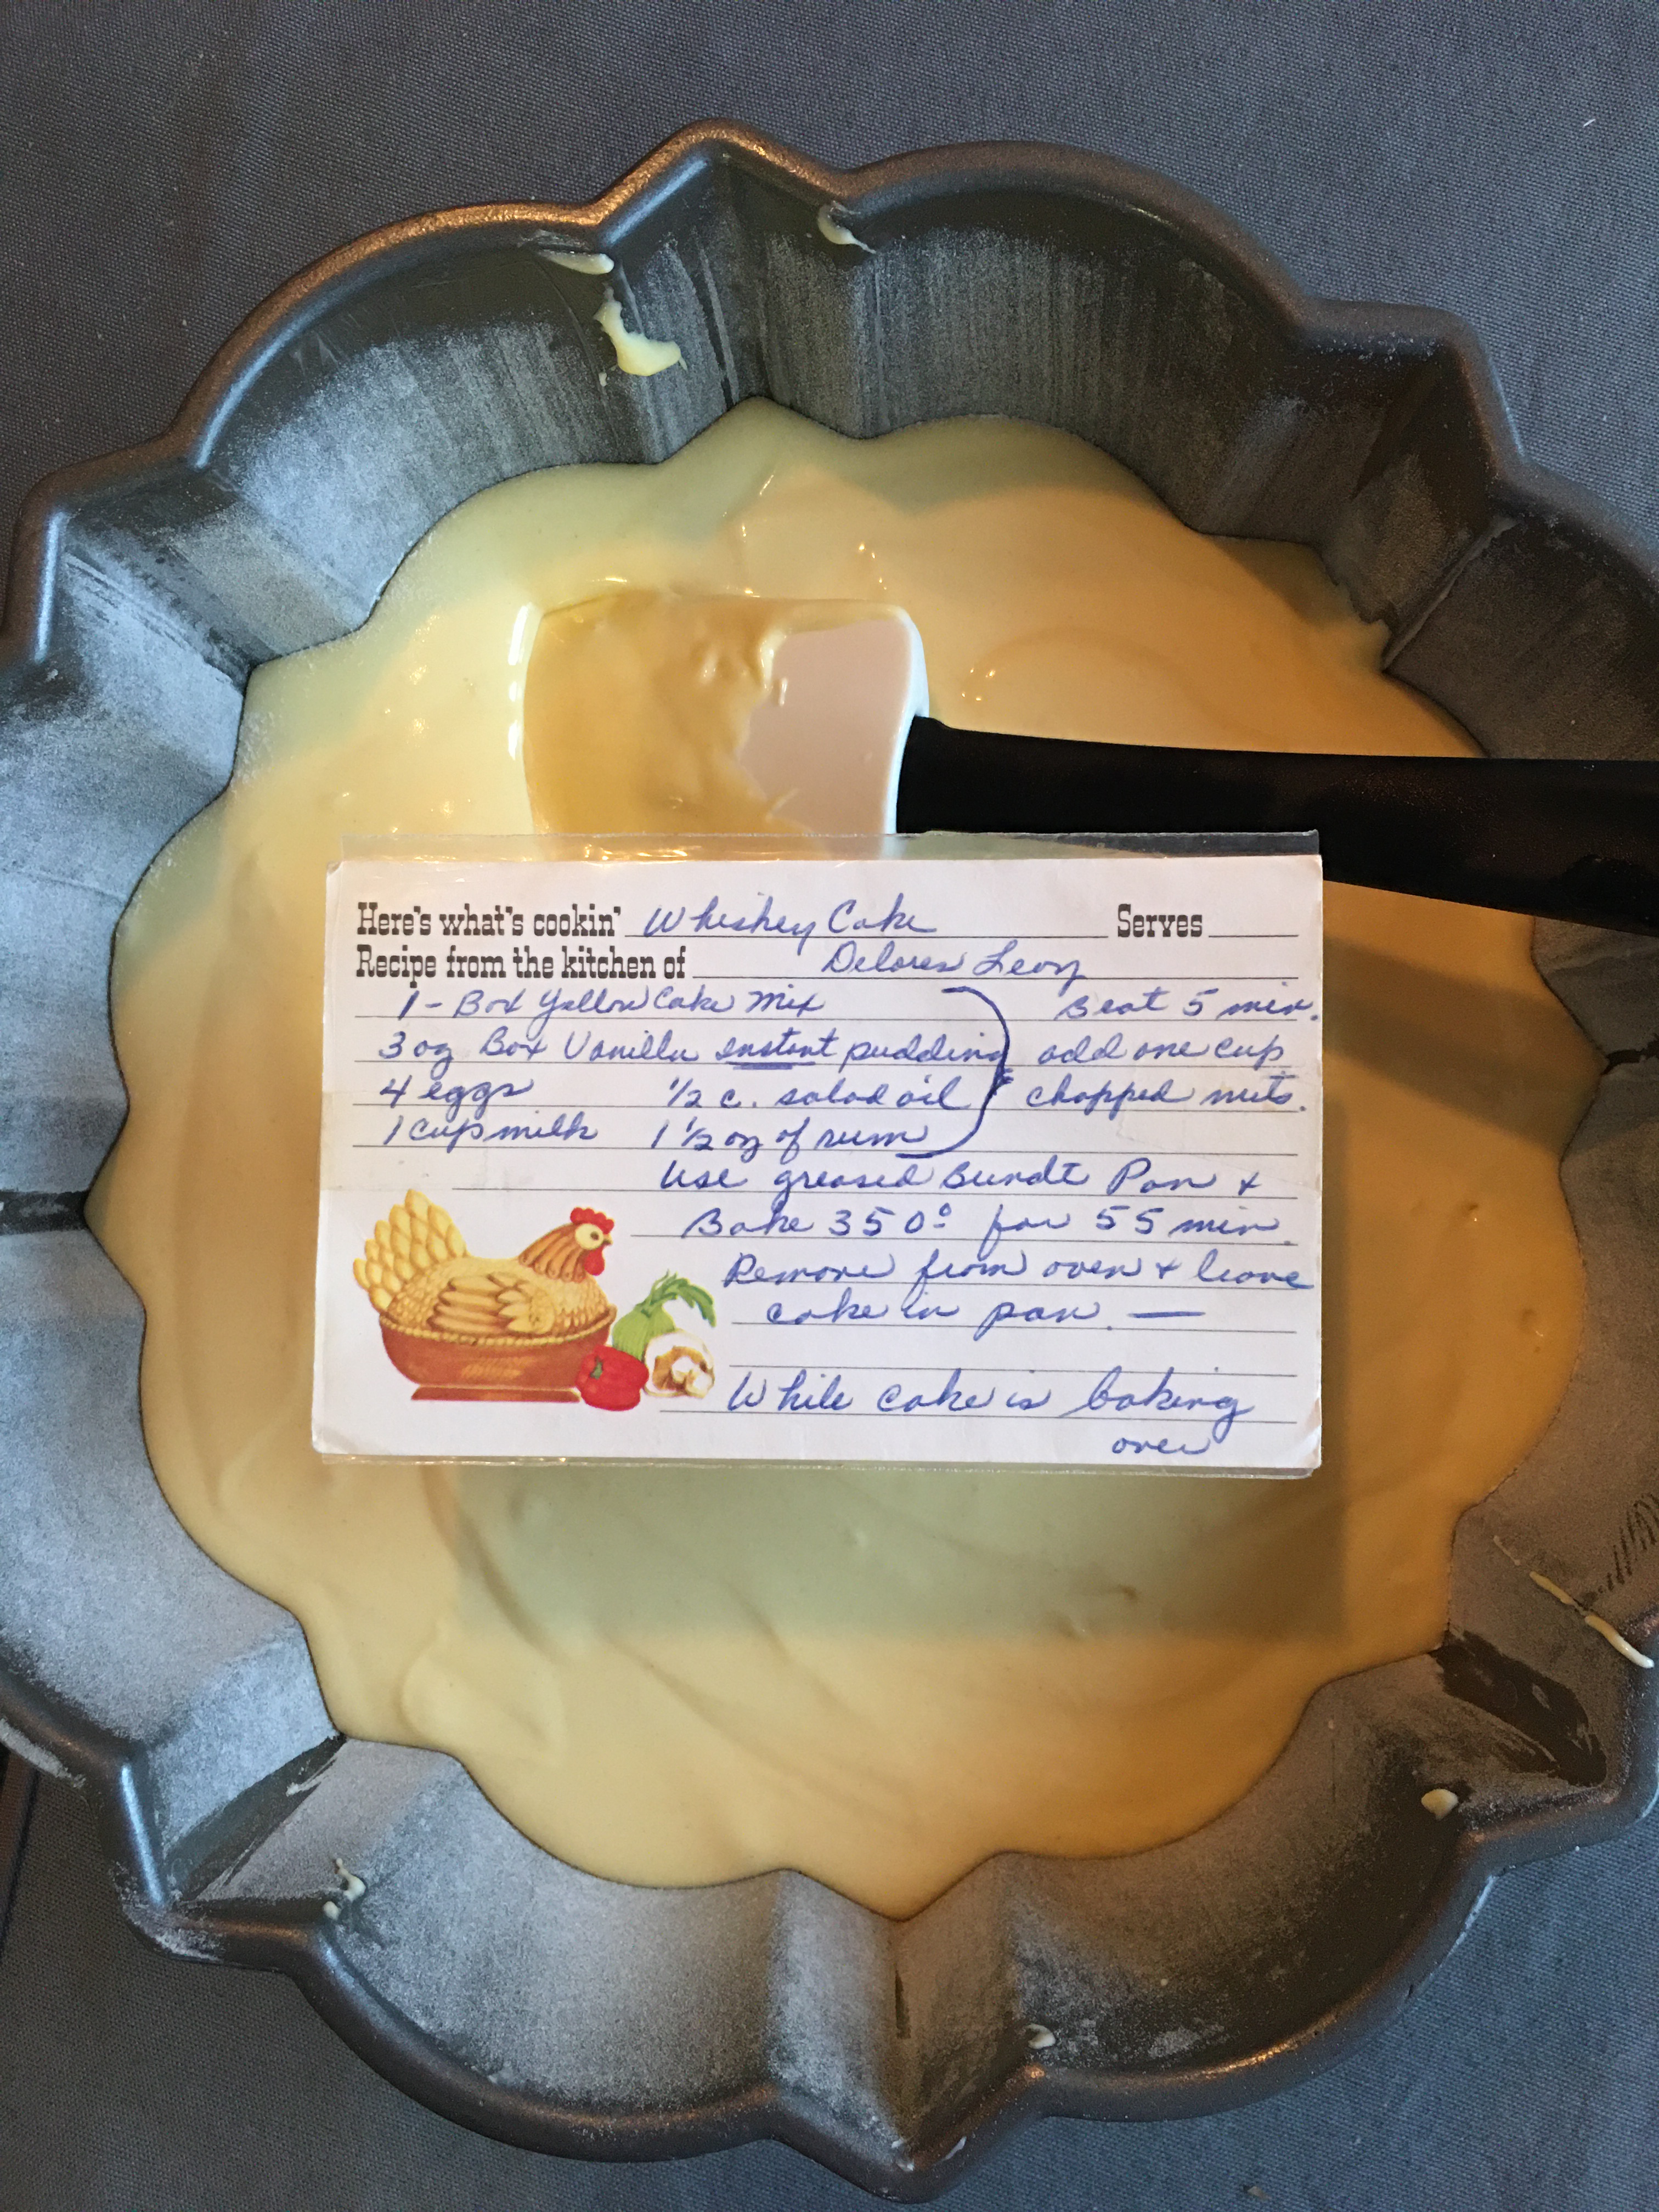 Here's what's cookin' Whiskey Cake Serves
Recipe from the kitchen of Delores Leon
1 - Box Yellow Cake Mix Beat 5 min.
3 oz Box Vanilla instant pudding add one cup
4 eggs 1/2 c. salad oil & chopped nuts.
1 cup milk 1 1/2 oz of rum
Use greased Bundt Pan +
Bake 350° for 55 min.
Remove from oven + leave
cake in pan. —
While cake is baking
over